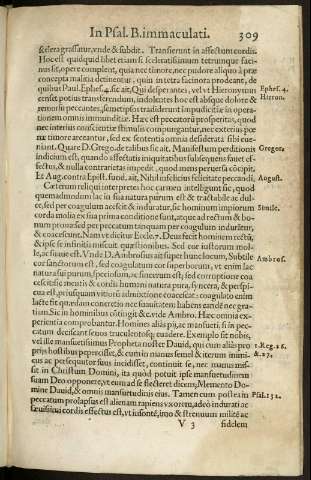 In Psal. B. immaculati. 309
scelera grassatur, vnde & subdit. Transierunt in affectum cordis.
Hoc est quidquid libet etiam si sceleratissimum tetrumque faci-
nus sit, opere complent, quia nec timore, nec pudore aliquo à præ
concepta malitia detinentur, quin in tetra facinora prodeant, de
quibus Paul. Ephes. 4. sic ait, Qui desperantes, vel vt Hieronymum
Ephes. 4.
Hieron.
rorum si peccantes, semetipsos tradiderunt impudicitiæ in opera-
tionem omnis immunditiæ. Hæc est peccatorū prosperitas, quod
nec interius conscientiæ stimulis compungantur, nec exterius pœ
næ timore arceantur, sed ex sententia omnia desiderata sibi eue-
niant. Quare D. Grego. de talibus sic ait. Manifestum perditionis
Gregor.
indicium est, quando affectatis iniquitatibus subsequens fauet ef-
fectus, & nulla contrarietas impedit, quod mens peruersa cōcipit.
Et Aug. contra Epist. fund. ait, Nihil infelicius felicitate peccandi.
August.
Cæterum reliqui interpretes hoc carmen intelligunt sic, quod
quemadmodum lac in sua natura purum est & tractabile ac dul-
ce, sed per coagulum acescit & induratur, sic hominum impiorum
Simile.
corda molia ex sua prima conditione sunt, atque ad rectum & bo-
num prona sed per peccatum tanquam per coagulum indurātur,
& coacescunt. Nam vt dicitur Eccle. 7. Deus fecit hominem rectū,
& ipse se infinitis miscuit quæstionibus. Sed cor iustorum mol-
le, ac suaue est. Vnde D. Ambrosius ait super hunc locum, Subtile
Ambros.
cor sanctorum est, sed coagulatum cor superborum, vt enim lac
natura sui purum, speciosum, ac sincerum est, sed corruptione coa
cescit sic mentis & cordis humani natura pura, syncera, & perspi-
cua est, priusquam vitiorū admixtione coacescat: coagulato enim
tium. Sic in hominibus cōtingit &c. vide Ambro. Hæc omnia ex-
perientia comprobantur. Homines aliàs pij, ac mansueti, si in pec-
catum decidant æstus truculentosq; euadere. Exemplo sit nobis,
vel ille mansuetissimus Propheta noster Dauid, qui cum aliàs pro
1. Reg. 26.
prijs hostibus pepercisset, & cum in manus semel & iterum inimi-
& 27.
cus ac persequutor suus incidisset, continuit se, nec manus mi-
sit in Christum Domini, ita quòd potuit ipse mansuetudinem
suam Deo opponere, vt eum ad se flecteret dicens, Memento Do-
mine Dauid, & omnis mansuetudinis eius. Tamen cum postea in
Psal. 131.
peccatum prolapsus est alienam rapiens vxorem, adeò indurati ac
sæuissimi cordis effectus est, vt insontē, imo & strenuum milite ac
V 3 fidelem